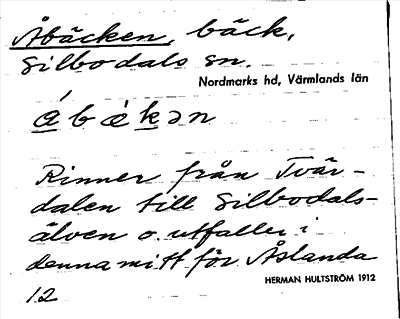 Åbäcken, bäck,
Silbodals sn.
Nordmarks hd, Värmlands län
á b æ̀ k ə n
Rinner från Tvär-
dalen till Silbodals-
älven o. utfaller i
denna mitt för Åslanda
HERMAN HULTSTRÖM 1912
12